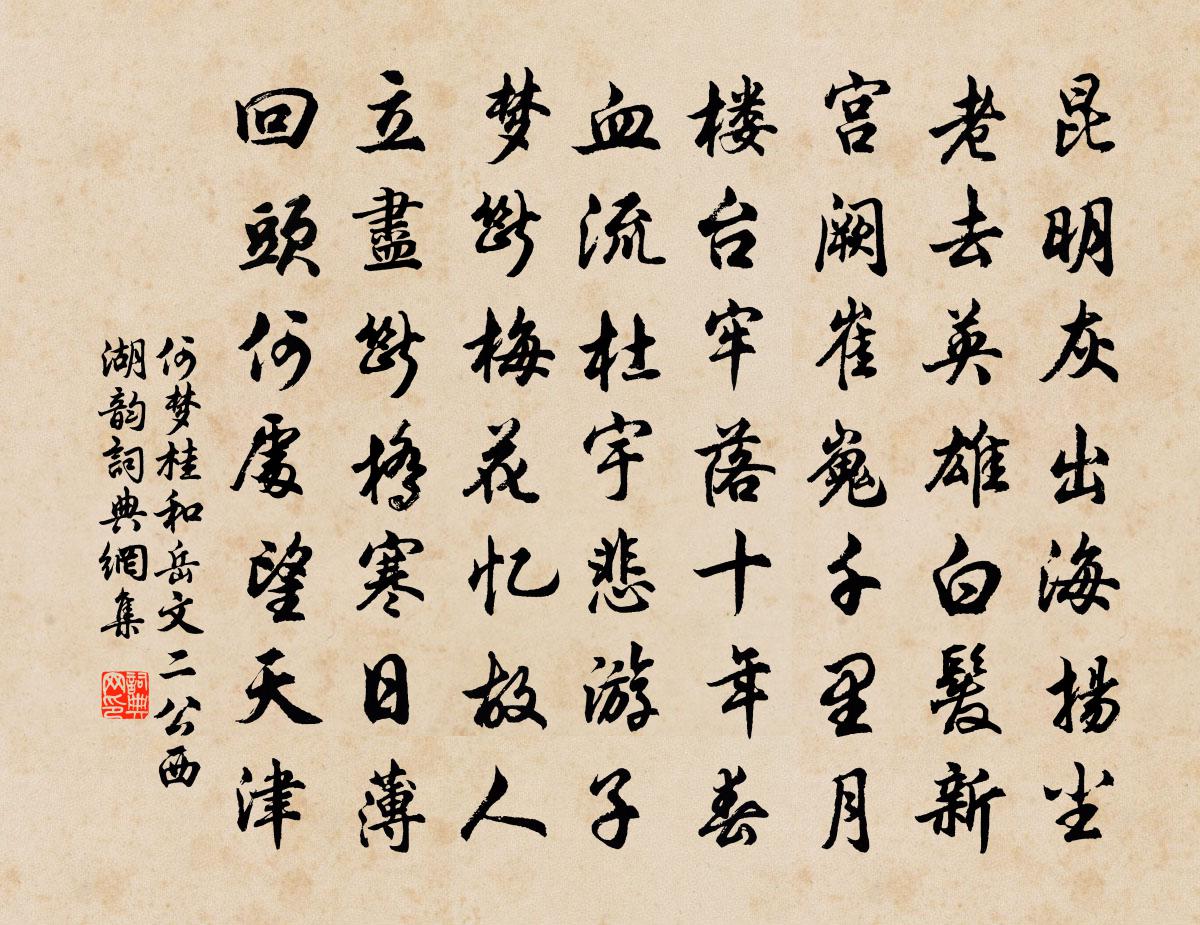 昆明灰出海揚尘
老去英雄白髮新
宫阙崔嵬千里月
楼台牢落十年春
血流杜宇悲游子
梦斷梅花忆故人
立盡斷橋寒日薄
回頭何處望天津
何梦桂和岳文二公西
湖韵詞典網集
詞典网印